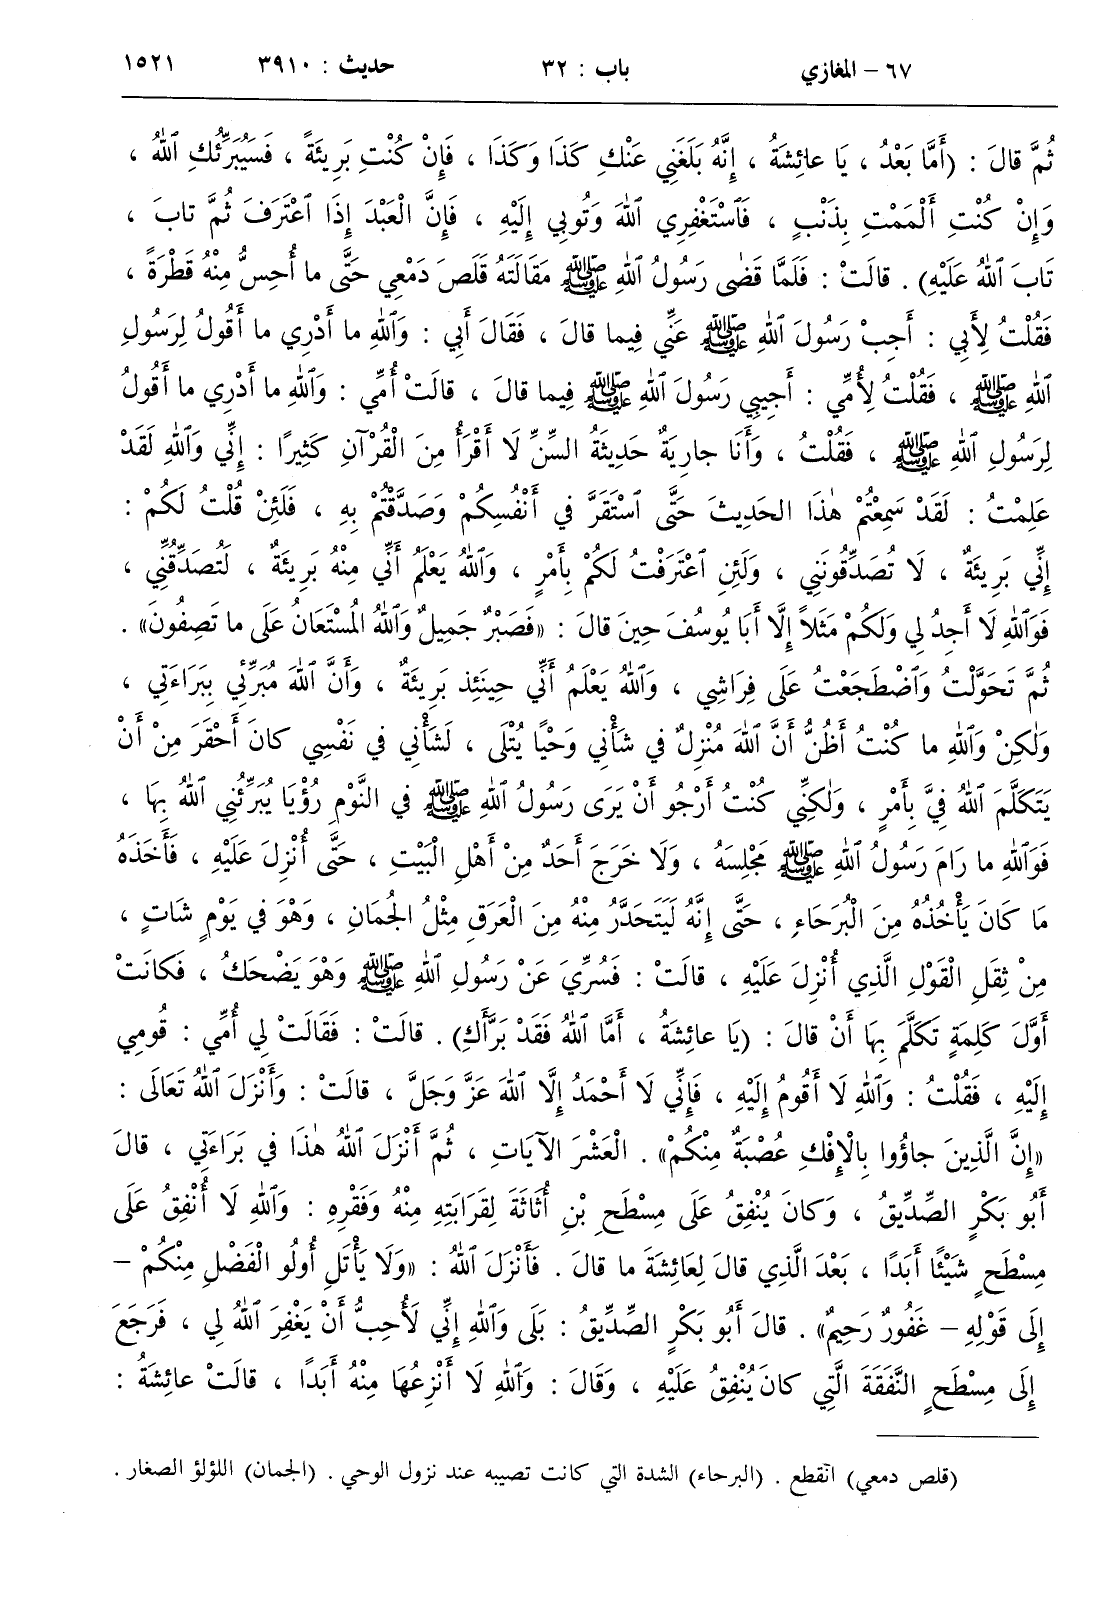 ٦٧ – المغازي    باب : ٣٢    حديث : ٣٩١٠    ١٥٢١
ثُمَّ قالَ : (أَمَّا بَعْدُ ، يَا عائِشَةُ ، إِنَّهُ بَلَغَنِي عَنْكِ كَذَا وَكَذَا ، فَإِنْ كُنْتِ بَرِيئَةً ، فَسَيُبَرِّئُكِ ٱللهُ ،
وَإِنْ كُنْتِ أَلْمَمْتِ بِذَنْبٍ ، فَٱسْتَغْفِرِي ٱللهَ وَتُوبِي إِلَيْهِ ، فَإِنَّ الْعَبْدَ إِذَا ٱعْتَرَفَ ثُمَّ تابَ ،
تَابَ ٱللهُ عَلَيْهِ) . قالَتْ : فَلَمَّا قَضَى رَسُولُ ٱللهِ ﷺ مَقَالَتَهُ قَلَصَ دَمْعِي حَتَّى ما أُحِسُّ مِنْهُ قَطْرَةً ،
فَقُلْتُ لِأَبِي : أَجِبْ رَسُولَ ٱللهِ ﷺ عَنِّي فِيما قالَ ، فَقَالَ أَبِي : وَٱللهِ ما أَدْرِي ما أَقُولُ لِرَسُولِ
ٱللهِ ﷺ ، فَقُلْتُ لِأُمِّي : أَجِيبِي رَسُولَ ٱللهِ ﷺ فِيما قالَ ، قالَتْ أُمِّي : وَٱللهِ ما أَدْرِي ما أَقُولُ
لِرَسُولِ ٱللهِ ﷺ ، فَقُلْتُ ، وَأَنَا جارِيَةٌ حَدِيثَةُ السِّنِّ لَا أَقْرَأُ مِنَ الْقُرْآنِ كَثِيرًا : إِنِّي وَٱللهِ لَقَدْ
عَلِمْتُ : لَقَدْ سَمِعْتُمْ هٰذَا الحَدِيثَ حَتَّى ٱسْتَقَرَّ فِي أَنْفُسِكُمْ وَصَدَّقْتُمْ بِهِ ، فَلَئِنْ قُلْتُ لَكُمْ :
إِنِّي بَرِيئَةٌ ، لَا تُصَدِّقُونَنِي ، وَلَئِنِ ٱعْتَرَفْتُ لَكُمْ بِأَمْرٍ ، وَٱللهُ يَعْلَمُ أَنِّي مِنْهُ بَرِيئَةٌ ، لَتُصَدِّقُنِّي ،
فَوَٱللهِ لَا أَجِدُ لِي وَلَكُمْ مَثَلاً إِلَّا أَبَا يُوسُفَ حِينَ قالَ : «فَصَبْرٌ جَمِيلٌ وَٱللهُ المُسْتَعَانُ عَلَى ما تَصِفُونَ» .
ثُمَّ تَحَوَّلْتُ وَٱضْطَجَعْتُ عَلَى فِرَاشِي ، وَٱللهُ يَعْلَمُ أَنِّي حِينَئِذٍ بَرِيئَةٌ ، وَأَنَّ ٱللهَ مُبَرِّئِي بِبَرَاءَتِي ،
وَلٰكِنْ وَٱللهِ ما كُنْتُ أَظُنُّ أَنَّ ٱللهَ مُنْزِلٌ في شَأْنِي وَحْيًا يُتْلَى ، لَشَأْنِي في نَفْسِي كانَ أَحْقَرَ مِنْ أَنْ
يَتَكَلَّمَ ٱللهُ فِيَّ بِأَمْرٍ ، وَلٰكِنِّي كُنْتُ أَرْجُو أَنْ يَرَى رَسُولُ ٱللهِ ﷺ في النَّوْمِ رُؤْيَا يُبَرِّئُنِي ٱللهُ بِهَا ،
فَوَٱللهِ ما رَامَ رَسُولُ ٱللهِ ﷺ مَجْلِسَهُ ، وَلَا خَرَجَ أَحَدٌ مِنْ أَهْلِ الْبَيْتِ ، حَتَّى أُنْزِلَ عَلَيْهِ ، فَأَخَذَهُ
مَا كانَ يَأْخُذُهُ مِنَ الْبُرَحَاءِ ، حَتَّى إِنَّهُ لَيَتَحَدَّرُ مِنْهُ مِنَ الْعَرَقِ مِثْلُ الجُمَانِ ، وَهْوَ في يَوْمٍ شَاتٍ ،
مِنْ ثِقَلِ الْقَوْلِ الَّذِي أُنْزِلَ عَلَيْهِ ، قالَتْ : فَسُرِّيَ عَنْ رَسُولِ ٱللهِ ﷺ وَهْوَ يَضْحَكُ ، فَكانَتْ
أَوَّلَ كَلِمَةٍ تَكَلَّمَ بِهَا أَنْ قالَ : (يَا عائِشَةُ ، أَمَّا ٱللهُ فَقَدْ بَرَّأَكِ) . قالَتْ : فَقَالَتْ لِي أُمِّي : قُومِي
إِلَيْهِ ، فَقُلْتُ : وَٱللهِ لَا أَقُومُ إِلَيْهِ ، فَإِنِّي لَا أَحْمَدُ إِلَّا ٱللهَ عَزَّ وَجَلَّ ، قالَتْ : وَأَنْزَلَ ٱللهُ تَعَالَى :
«إِنَّ الَّذِينَ جاؤُوا بِالْإِفْكِ عُصْبَةٌ مِنْكُمْ» . الْعَشْرَ الآيَاتِ ، ثُمَّ أَنْزَلَ ٱللهُ هٰذَا في بَرَاءَتِي ، قالَ
أَبُو بَكْرٍ الصِّدِّيقُ ، وَكانَ يُنْفِقُ عَلَى مِسْطَحِ بْنِ أُثَاثَةَ لِقَرَابَتِهِ مِنْهُ وَفَقْرِهِ : وَٱللهِ لَا أُنْفِقُ عَلَى
مِسْطَحٍ شَيْئًا أَبَدًا ، بَعْدَ الَّذِي قالَ لِعَائِشَةَ ما قالَ . فَأَنْزَلَ ٱللهُ : «وَلَا يَأْتَلِ أُولُو الْفَضْلِ مِنْكُمْ –
إِلَى قَوْلِهِ – غَفُورٌ رَحِيمٌ» . قالَ أَبُو بَكْرٍ الصِّدِّيقُ : بَلَى وَٱللهِ إِنِّي لَأُحِبُّ أَنْ يَغْفِرَ ٱللهُ لِي ، فَرَجَعَ
إِلَى مِسْطَحٍ النَّفَقَةَ الَّتِي كانَ يُنْفِقُ عَلَيْهِ ، وَقالَ : وَٱللهِ لَا أَنْزِعُهَا مِنْهُ أَبَدًا ، قالَتْ عائِشَةُ :
(قلص دمعي) انقطع . (البرحاء) الشدة التي كانت تصيبه عند نزول الوحي . (الجمان) اللؤلؤ الصغار .